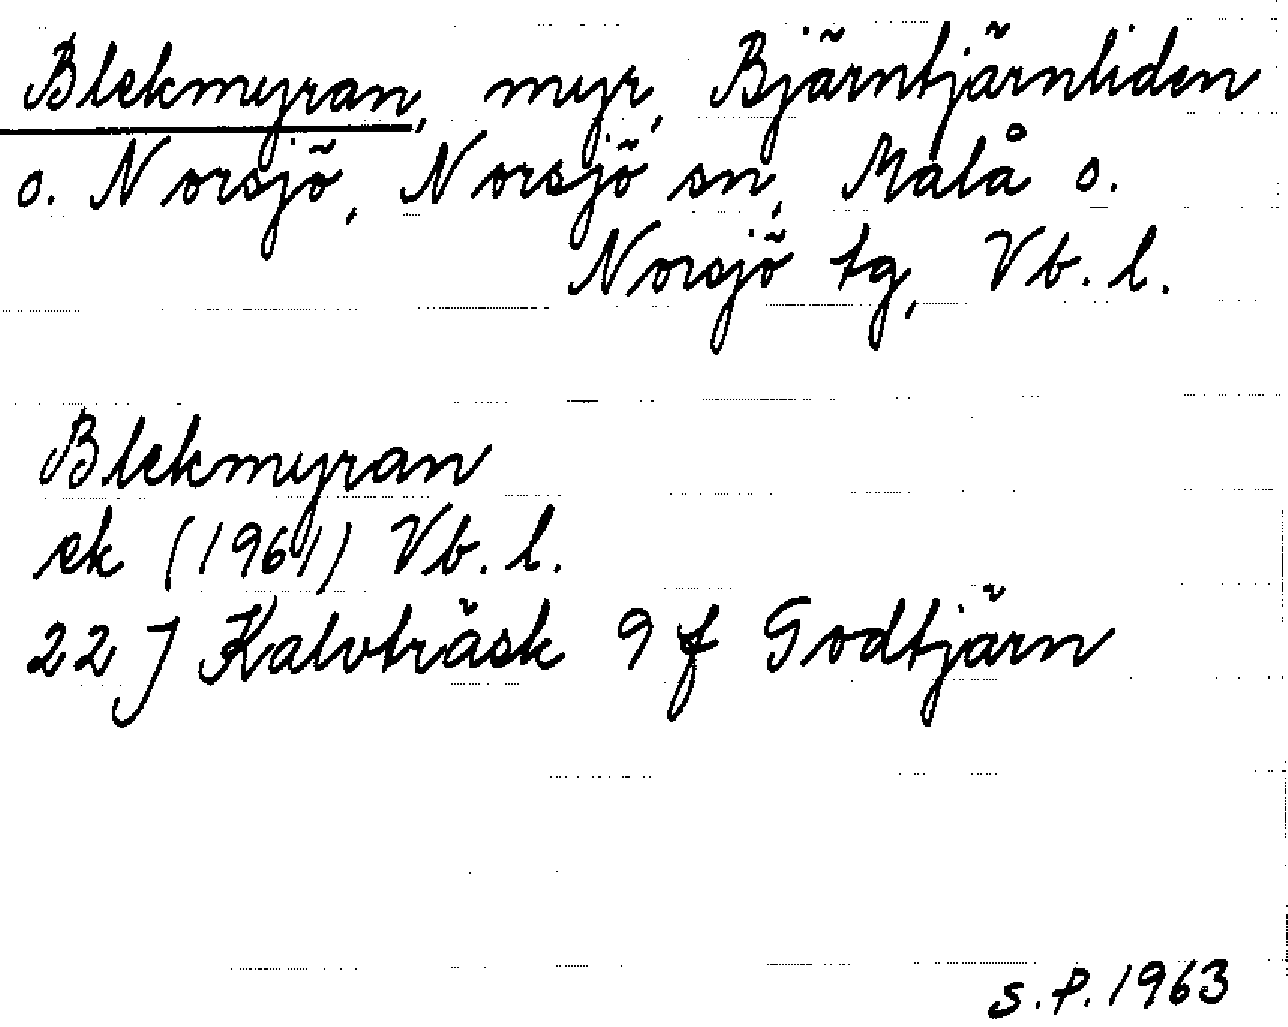 Blekmyran, myr, Bjärntjärnliden
o. Norsjö, Norsjö sn, Malå o.
Norsjö tg, Vb. l.
Blekmyran
ek (1961) Vb. l.
22 J Kalvträsk 9 f Godtjärn
S.P. 1963